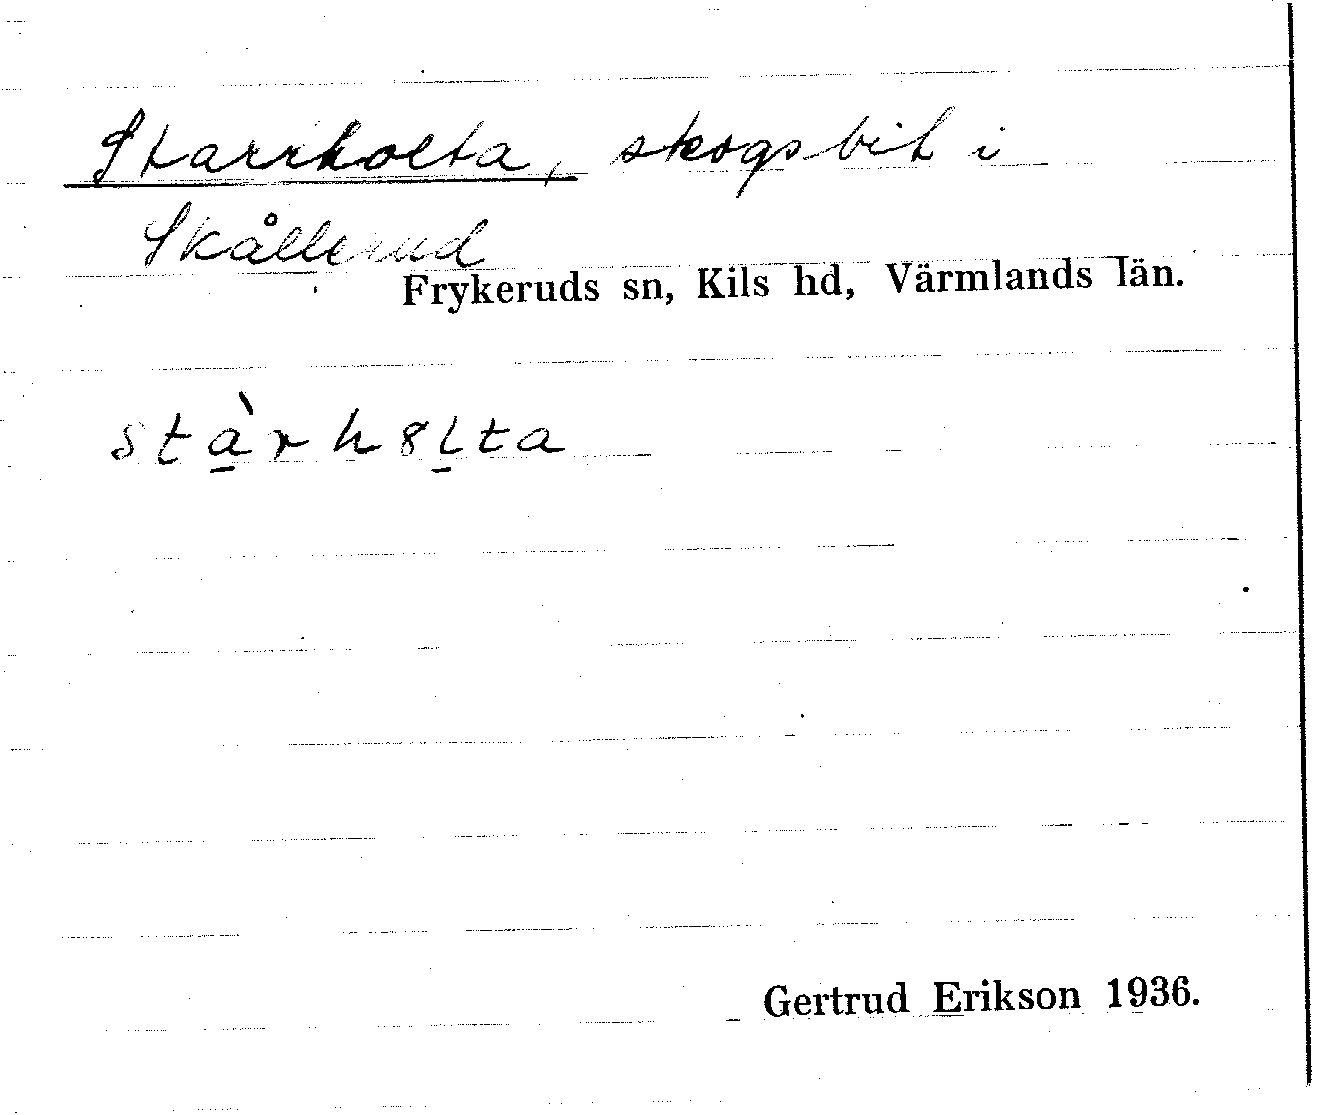 Starrholta, skogsbit i
Skållerud
Frykeruds sn, Kils hd, Värmlands län.
stàrh8lta
Gertrud Erikson 1936.